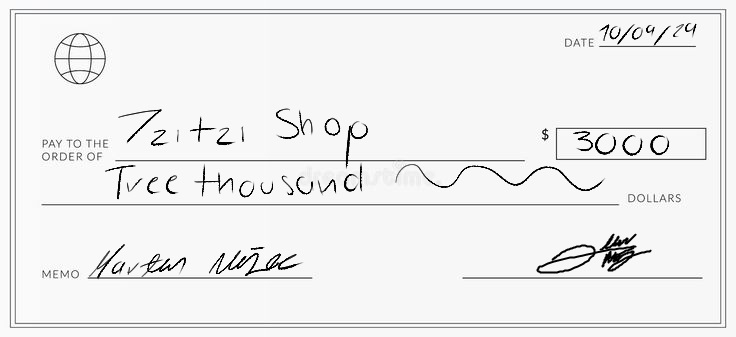 DATE 10/09/24
PAY TO THE ORDER OF Tzitzi Shop $ 3000
Tree thousand DOLLARS
MEMO